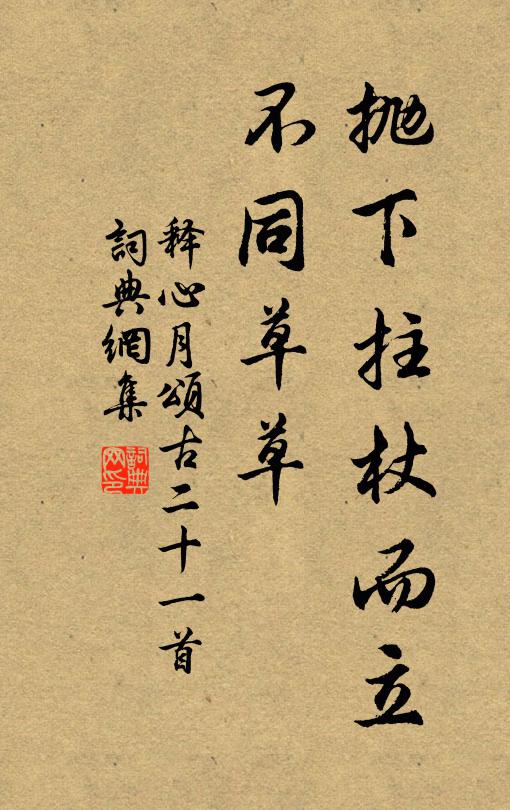 抛下拄杖而立
不同草草
释心月頌古二十一首
詞典網集
詞典网印